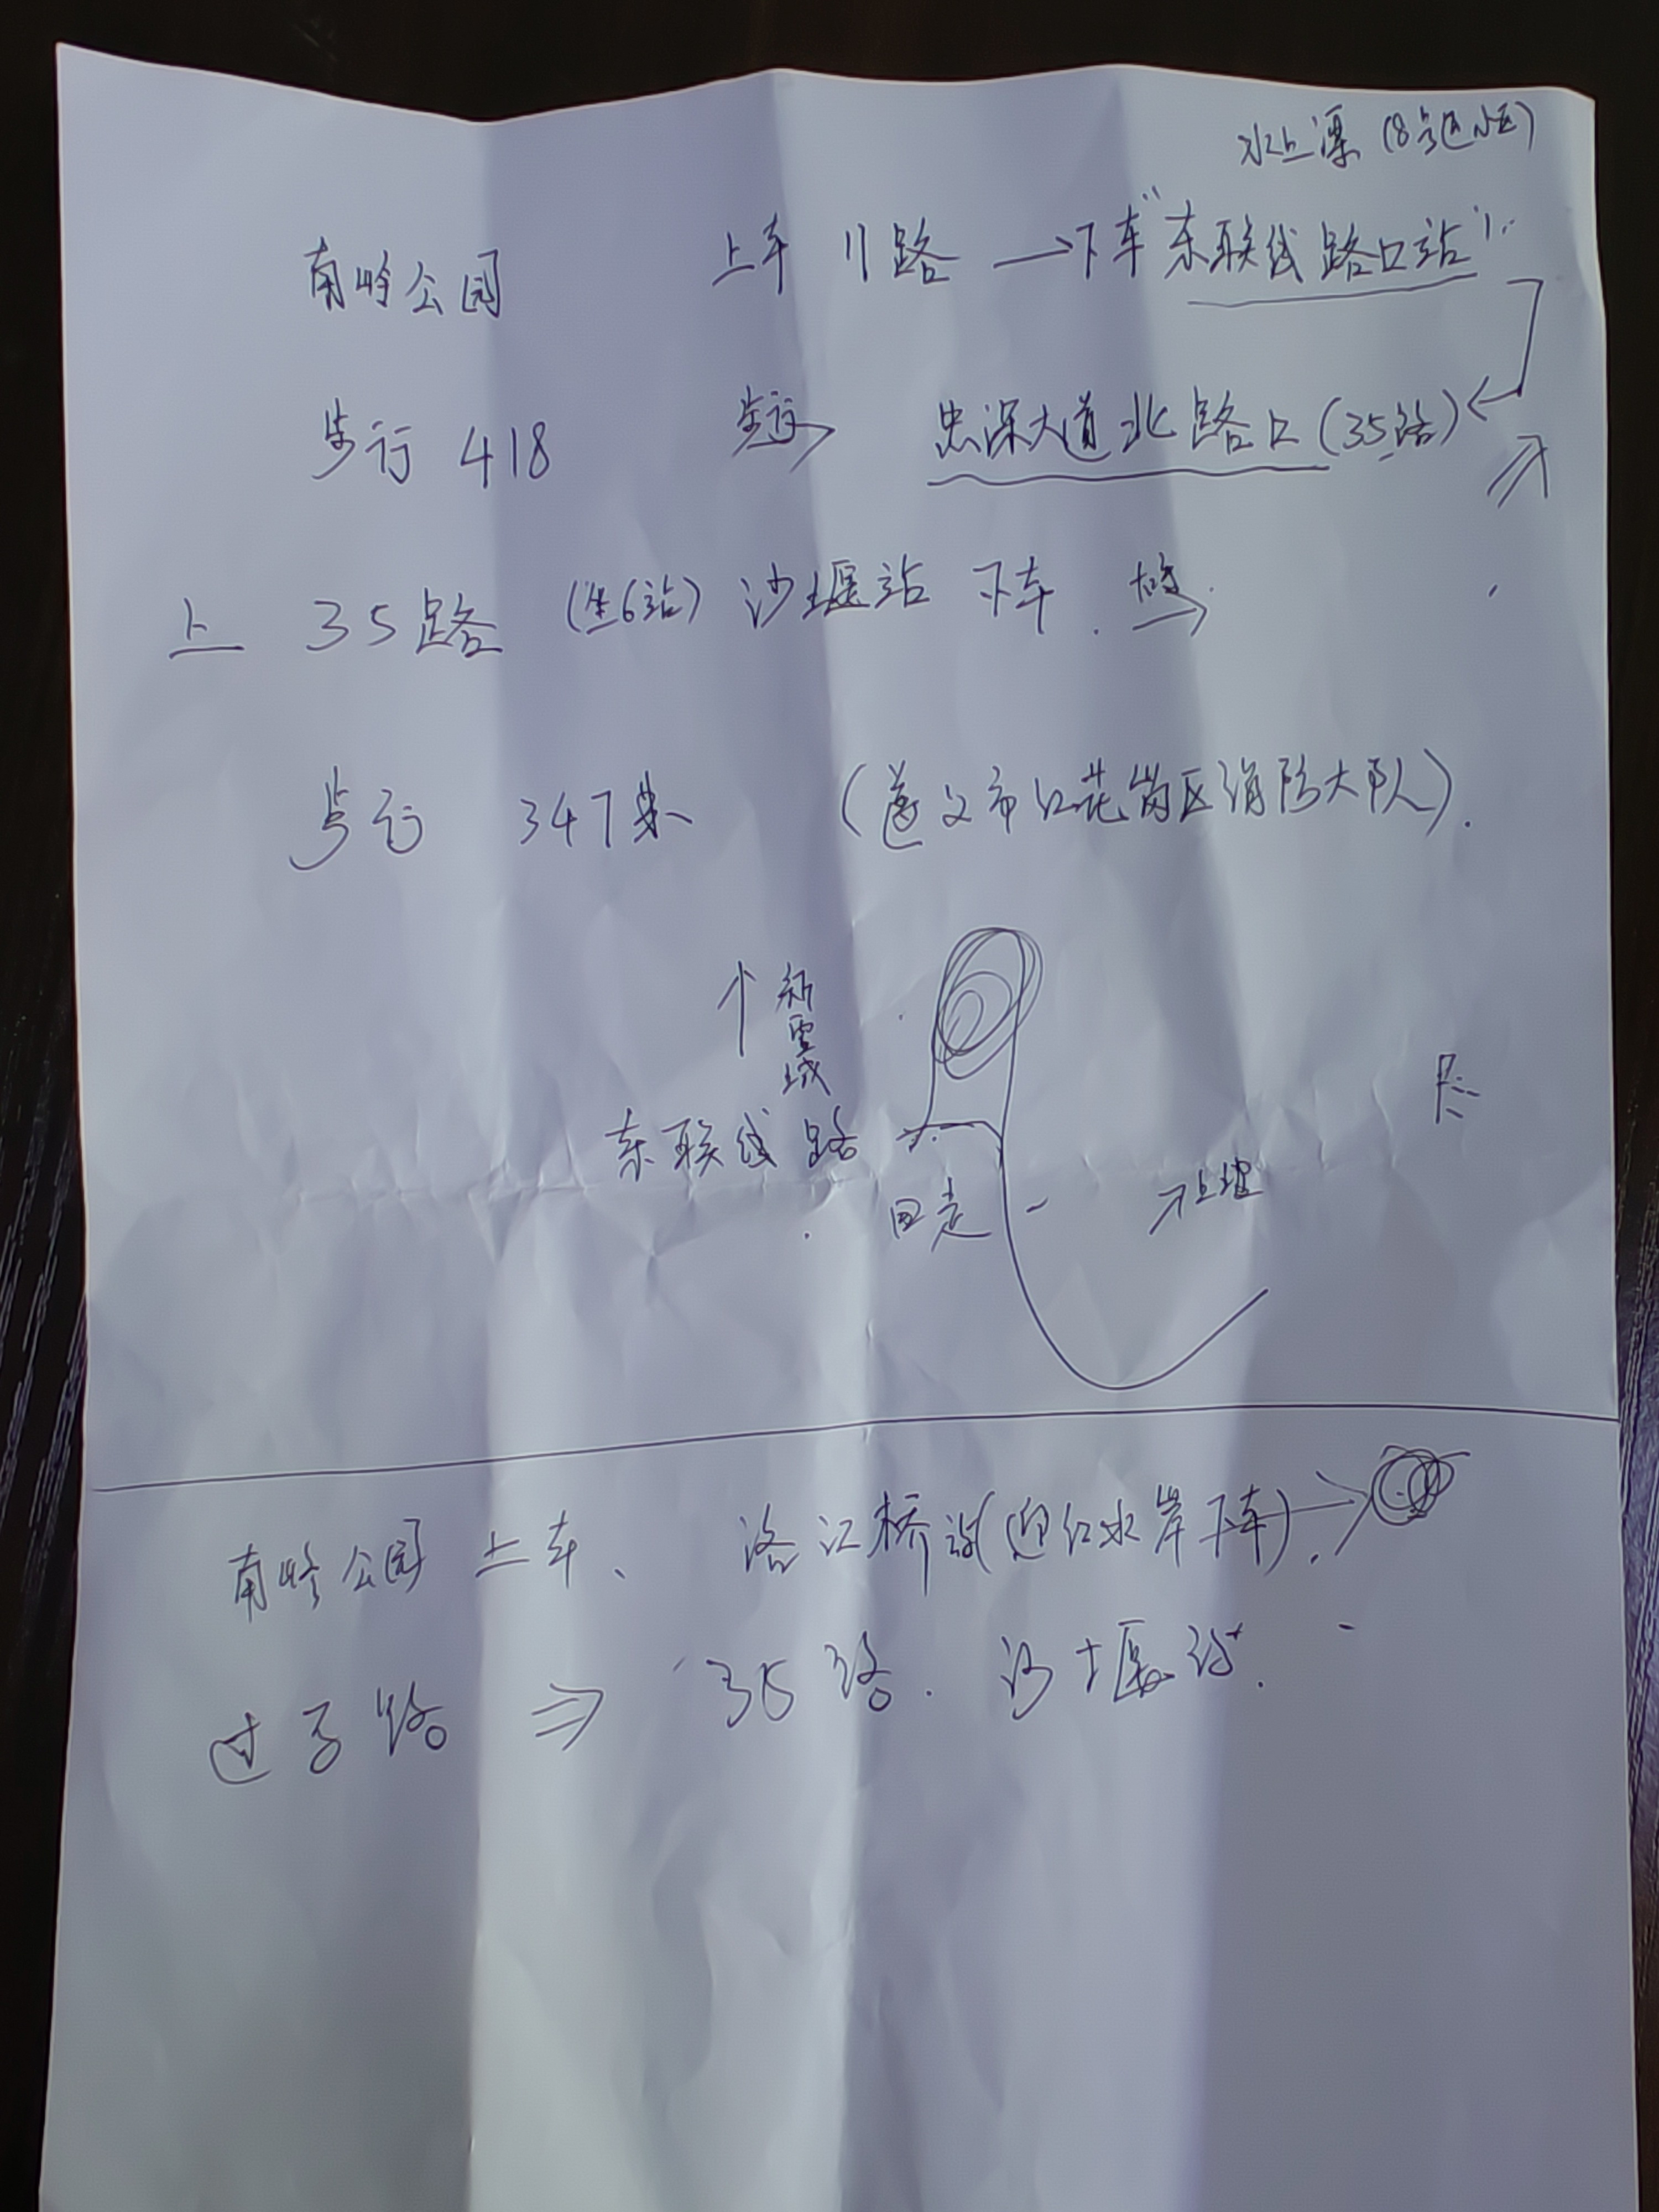 水上漂
南岭公园 上车 11路 → 下车"东联线路口站"
步行 418 步行→ 忠深大道北路口(35路)
上 35路 (坐6站) 沙堰站 下车. →
步行 347米 (遵义市红花岗区消防大队).
↑ 新雪域
东联线路
回走 ↗上坡
南岭公园 上车、 洛江桥站(迎红水岸下车).→
过了路 ⇒ 35路. 沙堰站.